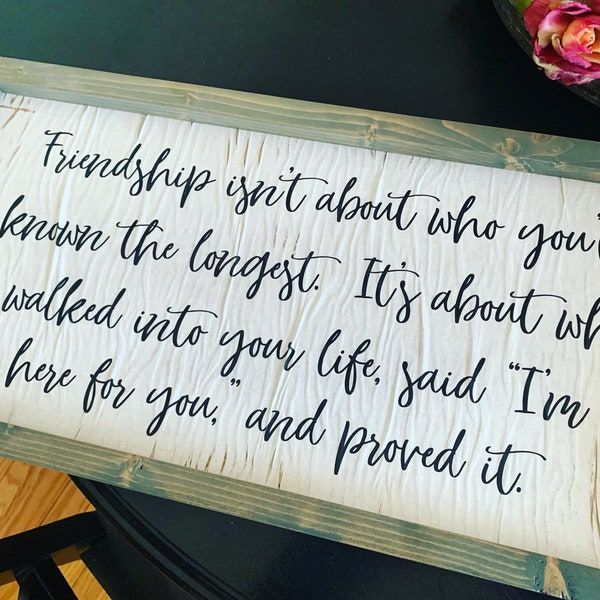 Friendship isn't about who you'
known the longest. It's about wh
walked into your life, said "I'm
here for you," and proved it.